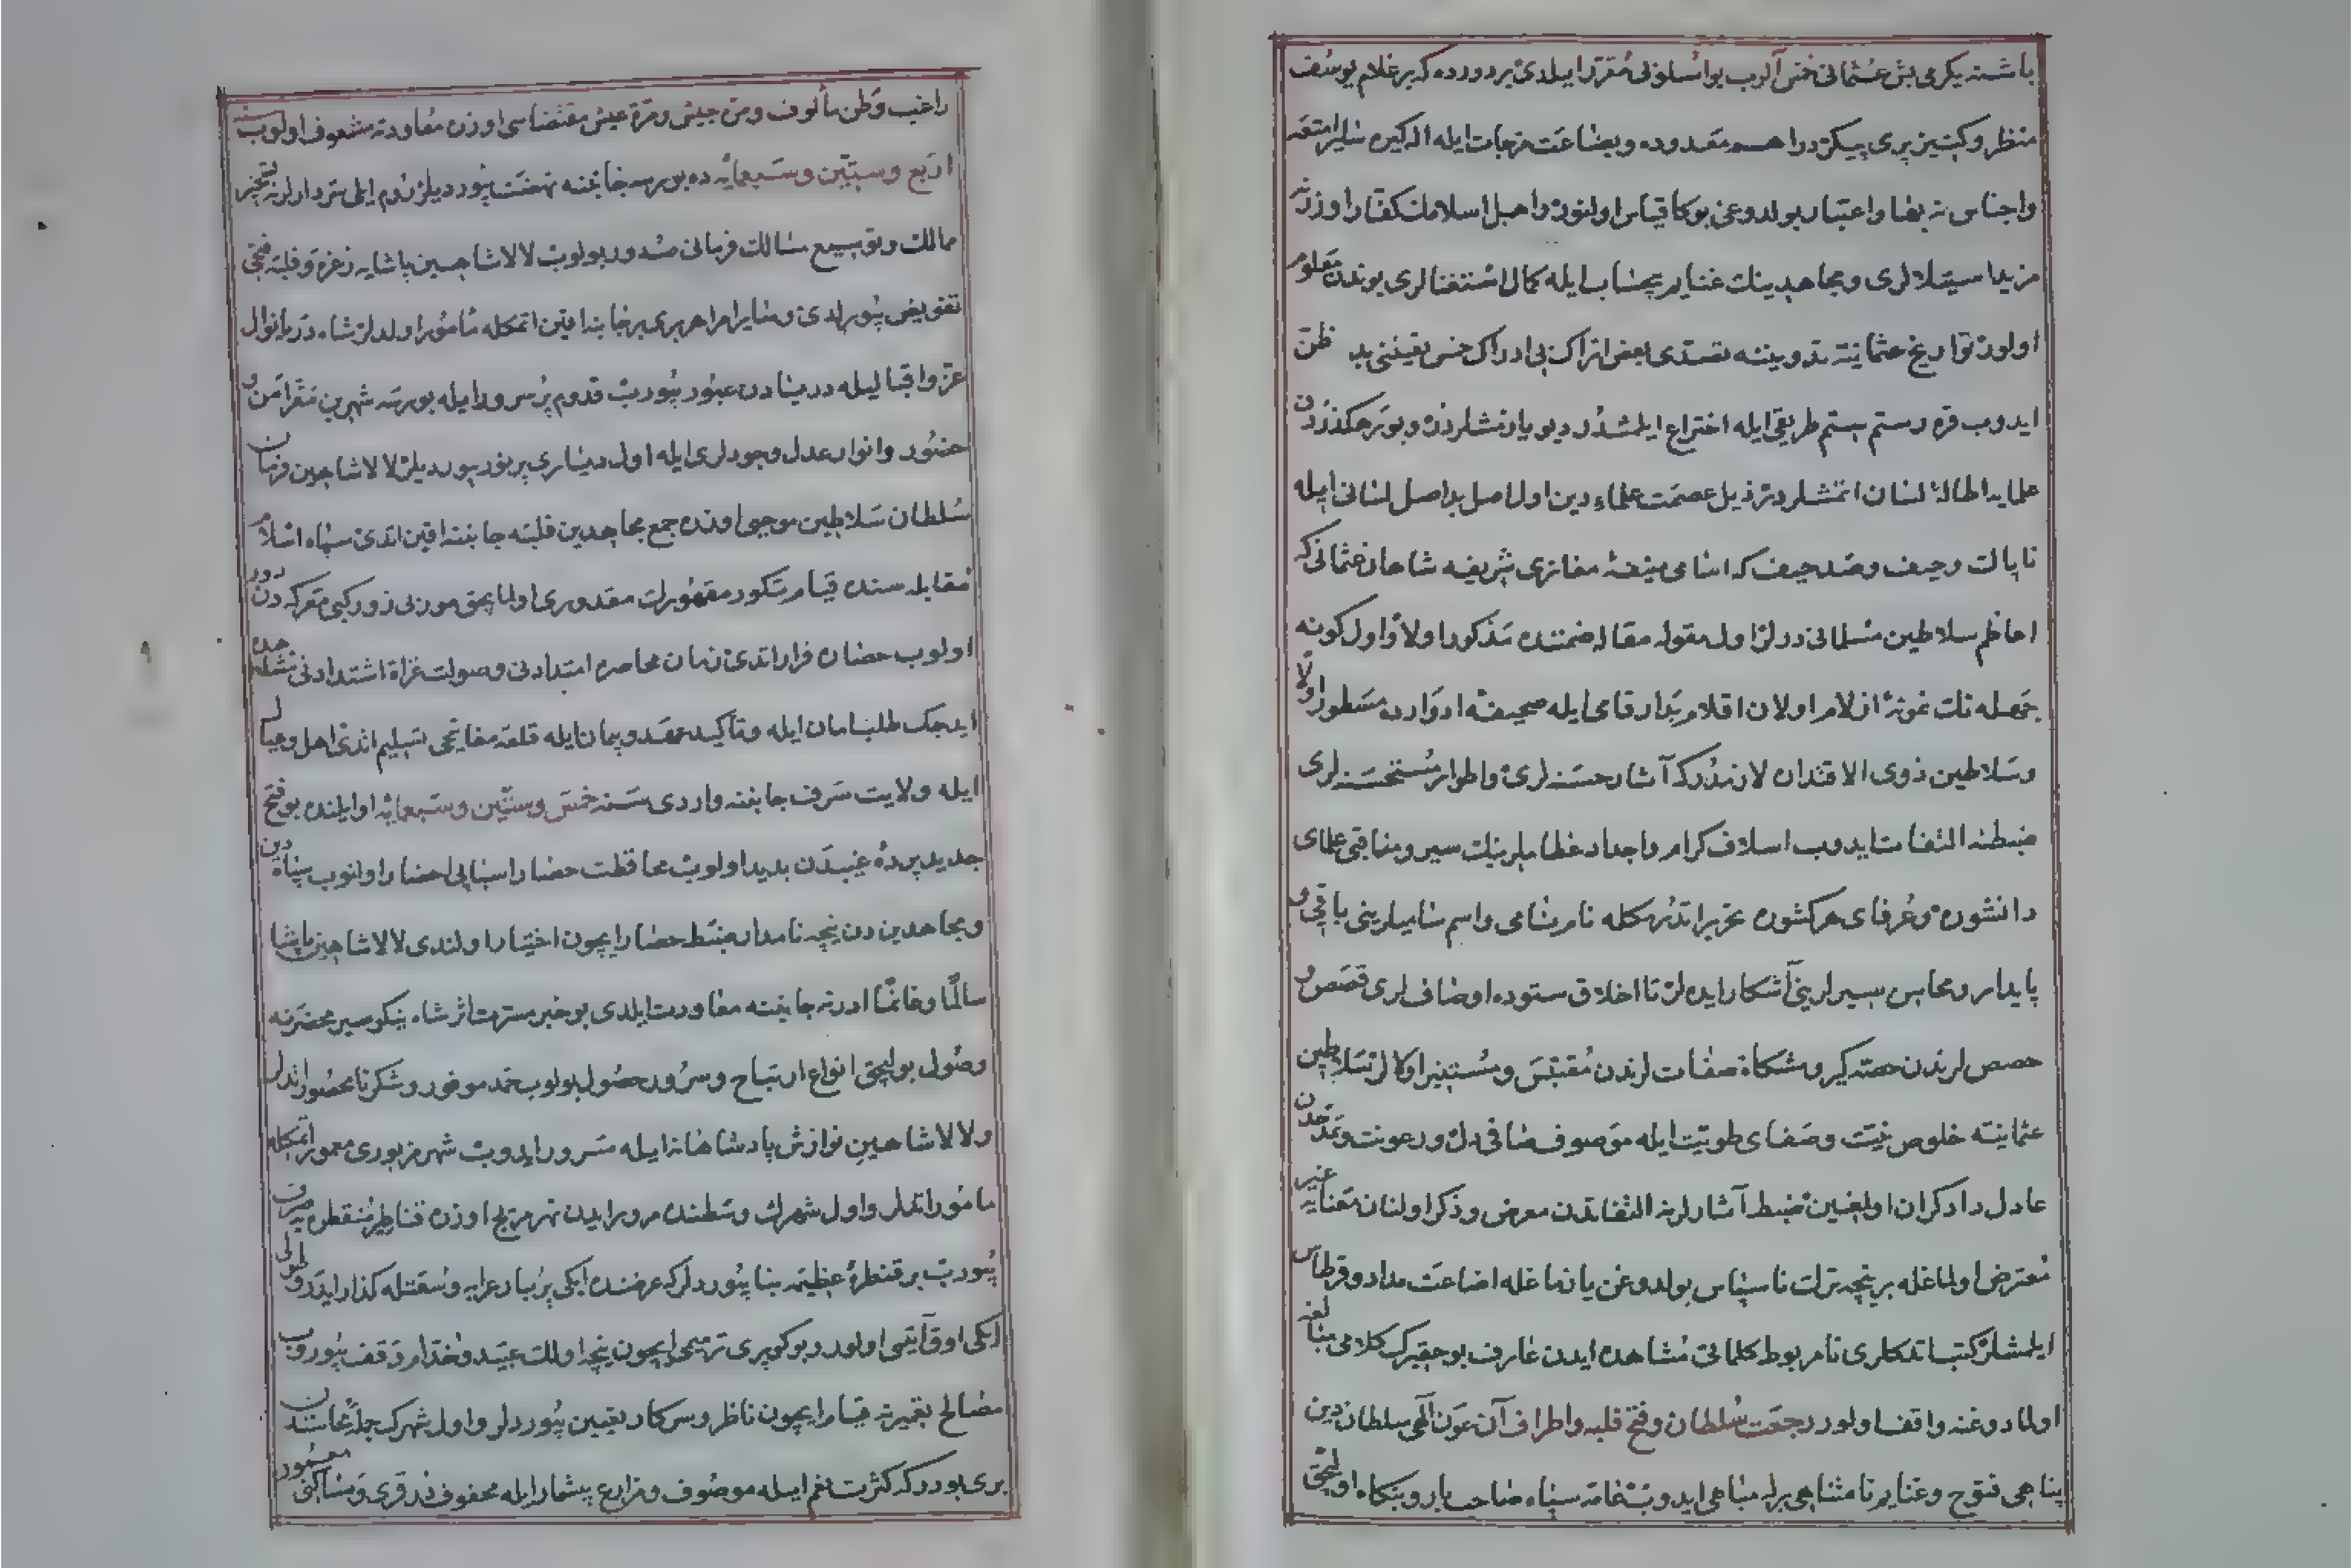 باشنه یکرمی بش عثمانی خمس آلوب بو اسلوبی مقرر ایلدی بر دورده که بر غلام یوسف
منظر و کنیز پری پیکر دراهم معدوده و بضاعت مزجات ایله اله کیره سایر امتعه
واجناس نه بها و اعتبار بولدوغی بوکا قیاس اولنور و اهل اسلامك کفار اوزرنه
مزید استیلالری و مجاهدینك غنایم بیحساب ایله کمال استغنالری بوندن معلوم
اولور تواریخ عثمانیه تدوینه تصدی بعض اتراك بی ادراك خمس تعیینی بد ظن
ایدوب قره رستم ستم طریقی ایله اختراع ایلمشدر دیو یازمشلردر و بو رهکذردن
علمایه اطاله لسان اتمشلردر ذیل عصمت علماء دین اول اصل بد اصل لسانی ایله
ناپاك و حیف و صد حیف که اسامی منیفه مغازی شریفه شاهان عثمانی که
اعاظم سلاطین مسلمانی درلر اول مقوله مقاله ضمننده مذکور اولا و اول کونه
جهله نك نمونه ازلام اولان اقلام بد ارقامی ایله صحیفه ادوارده مسطور اولا
وسلاطین ذوی الاقتداره لازمدر که آثار حسنه لری و اطوار مستحسنه لری
ضبطنه التفات ایدوب اسلاف کرام و اجداد عظاملرینك سیر و مناقبی علمای
دانشور و عرفای هر کشوره تحریر اتدرمکله نام نامی و اسم سامیلرینی باقی و
پایدار و محاسن سیرلرینی آشکار ایده لر تا اخلاق ستوده اوصاف لری قصص و
حصص لرندن حصه کیر و مشکاة صفات لرندن مقتبس و مستنیر اولالر سلاطین
عثمانیه خلوص نیت و صفای طویت ایله موصوف صافی دل و رعونت و تمدحدن
عادل دادکران اولمغین ضبط آثارلرینه التفاتدن معرض و ذکر اولنان معنایه غیر
متعرض اولماغله بر نیچه ترك ناسپاس بولدوغن یازماغله اضاعت مداد و قرطاس
ایلمشلر کتب اتدکلری نامربوط کلماتی مشاهده ایدن عارف بو حقیرك کلامی مبالغه
اولمادوغنه واقف اولور رجعت سلطان و فتح فلبه و اطراف آن بعون الهی سلطان دین
پناهی فتوح و غنایم نامتناهی برله مباهی ایدوب ستخامه سپاه صاحب بار و بنکاه اولیجق
راغب وطن مألوف و مره جیش و مرة عیش مقتضاسی اوزره معاودته مشعوف اولوب سنه
اربع وستین وسبعمائه ده بورسه جانبنه نهضت بیوردیلر روم ایلی سردارلرینه تسخیر
ممالك و توسیع مسالك فرمانی صدور بولوب لالا شاهین پاشایه زغره و فلبه فتحی
تفویض بیورلدی و سایر امرا هر بری بر جانبه اقین اتمکله مأمور اولدلر شاه دریا نوال
عز و اقبالیله دریادن عبور بیوروب قدوم پرسرور ایله بورسه شهرین مقر امن و
حضور و انوار عدل وجودلری ایله اول دیاری پر نور بیوردیلر لالا شاهین فرمان
سلطان سلاطین موجبی اوزره جمع مجاهدین فلبه جانبنه اقین اتدی سپاه اسلام
مقابله سنده قیام مذکور مقهورك مقدوری اولمایجق مور بی زور کبی معرکه دن دور
اولوب حصاره فرار اتدی زمان محاصره امتدادنی و صولت غزاة اشتدادنی مشاهده
ایدجك طلب امان ایله و تأکید عهد و پیمان ایله قلعه مفاتیحی تسلیم اتدی اهل و عیالی
ایله ولایت سرف جانبنه واردی سنه خمس وستین وسبعمائه اوایلنده بو فتح
جدید پرده غیبدن بدید اولوب محافظت حصار اسبابی احضار اولنوب سپاه دین
و مجاهدین دن نیچه نامدار ضبط حصار ایچون اختیار اولندی لالا شاهین پاشا
سالما و غانما ادرنه جانبنه معاودت ایلدی بو خبر مسرت اثر شاه نیکو سیر محضرنه
وصول بولیجق انواع ارتیاح و سرور حصول بولوب حمد موفور و شکر نامحصور اتدلر
و لالا شاهین نوازش پادشاهانه ایله مسرور ایدوب شهر مزبوری معمور اتمکله
مأمور اتدلر و اول شهرك وسطنده مرور ایدن نهر مریج اوزره قناطیر مقنطره صرف
بیوروب بر قنطره عظیمه بنا بیوردلر که عرضنده ایکی پربار عرابه وسعتله کذار ایدر و طولی
ایکی اوق آتیمی اولور و بو کوپری ترمیمی ایچون نیچه اوللك عبید و خدام وقف بیوروب
مصالح تعمیرنه قیام ایچون ناظر و سرکار تعیین بیوردلر و اول شهرك جلگاسندن
بری بودر که کثرت نعم ایله موصوف و مزارع بیشمار ایله محفوفدر قری و مساکنی معمور